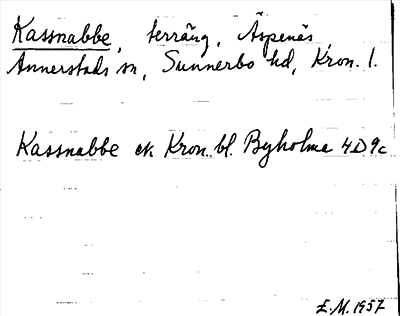 Kassnabbe, terräng, Äspenäs
Annerstads sn, Sunnerbo hd, Kron. l.
Kassnabbe ek Kron. bl. Byholma 4D9c
E.M. 1957